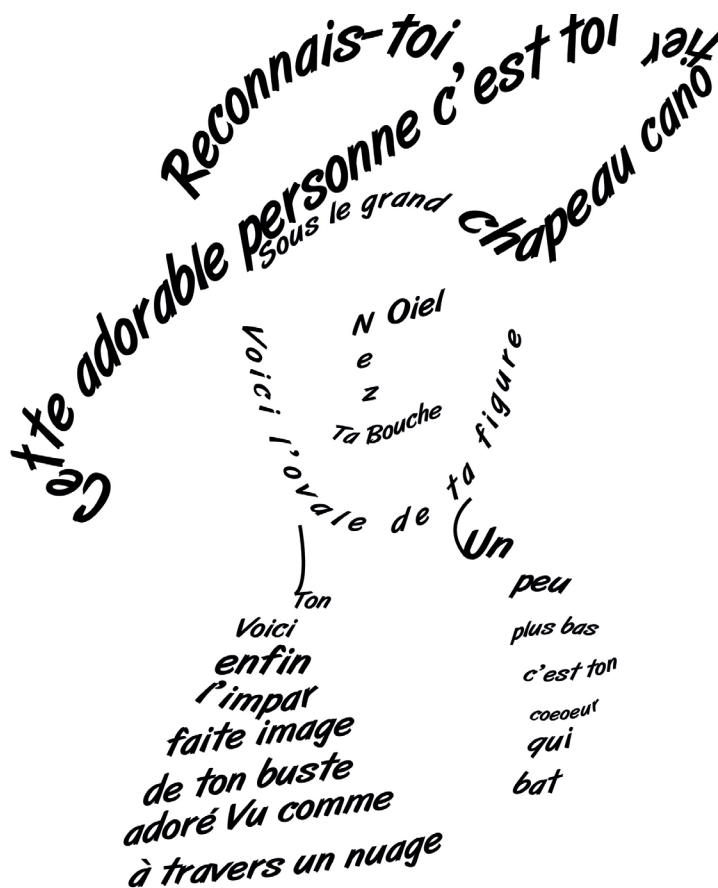 Reconnais-toi,
Cette adorable personne c'est toi
Sous le grand chapeau canotier
Oiel
Nez
Ta Bouche
Voici l'ovale de ta figure
Ton
Voici
enfin
l'impar
faite image
de ton buste
adoré Vu comme
à travers un nuage
Un
peu
plus bas
c'est ton
coeoeur
qui
bat